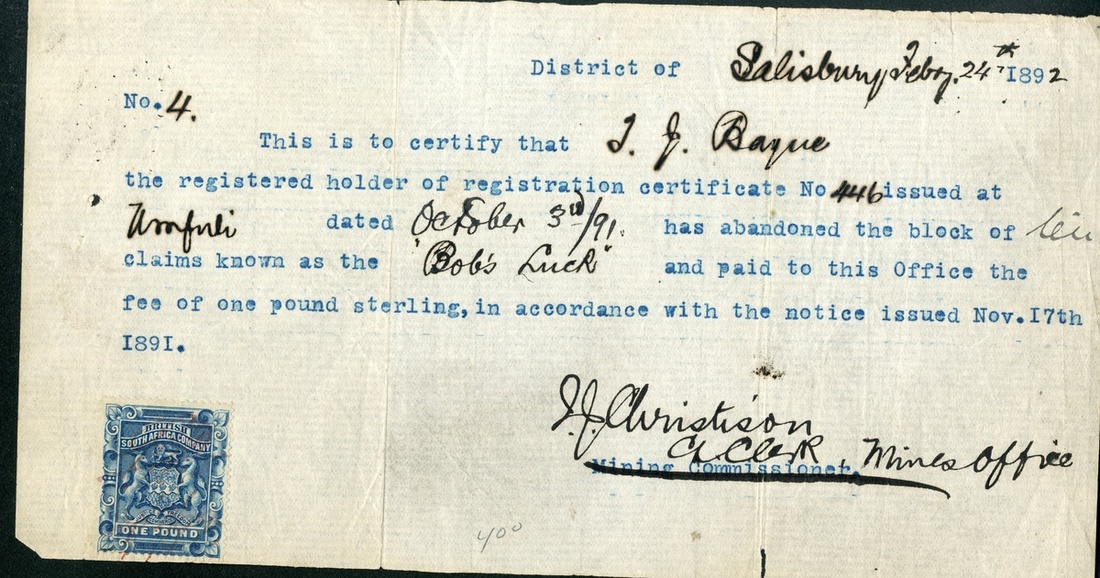 District of Salisbury Feby. 24th 1892
No. 4.
This is to certify that J. J. Bayne
the registered holder of registration certificate No 446 issued at
Umfuli dated October 3rd/91. has abandoned the block of ten
claims known as the "Bob's Luck" and paid to this Office the
fee of one pound sterling, in accordance with the notice issued Nov. 17th
1891.
J. J. Christison
Clerk, Mines Office
Mining Commissioner.
BRITISH
SOUTH AFRICA COMPANY
ONE POUND
400